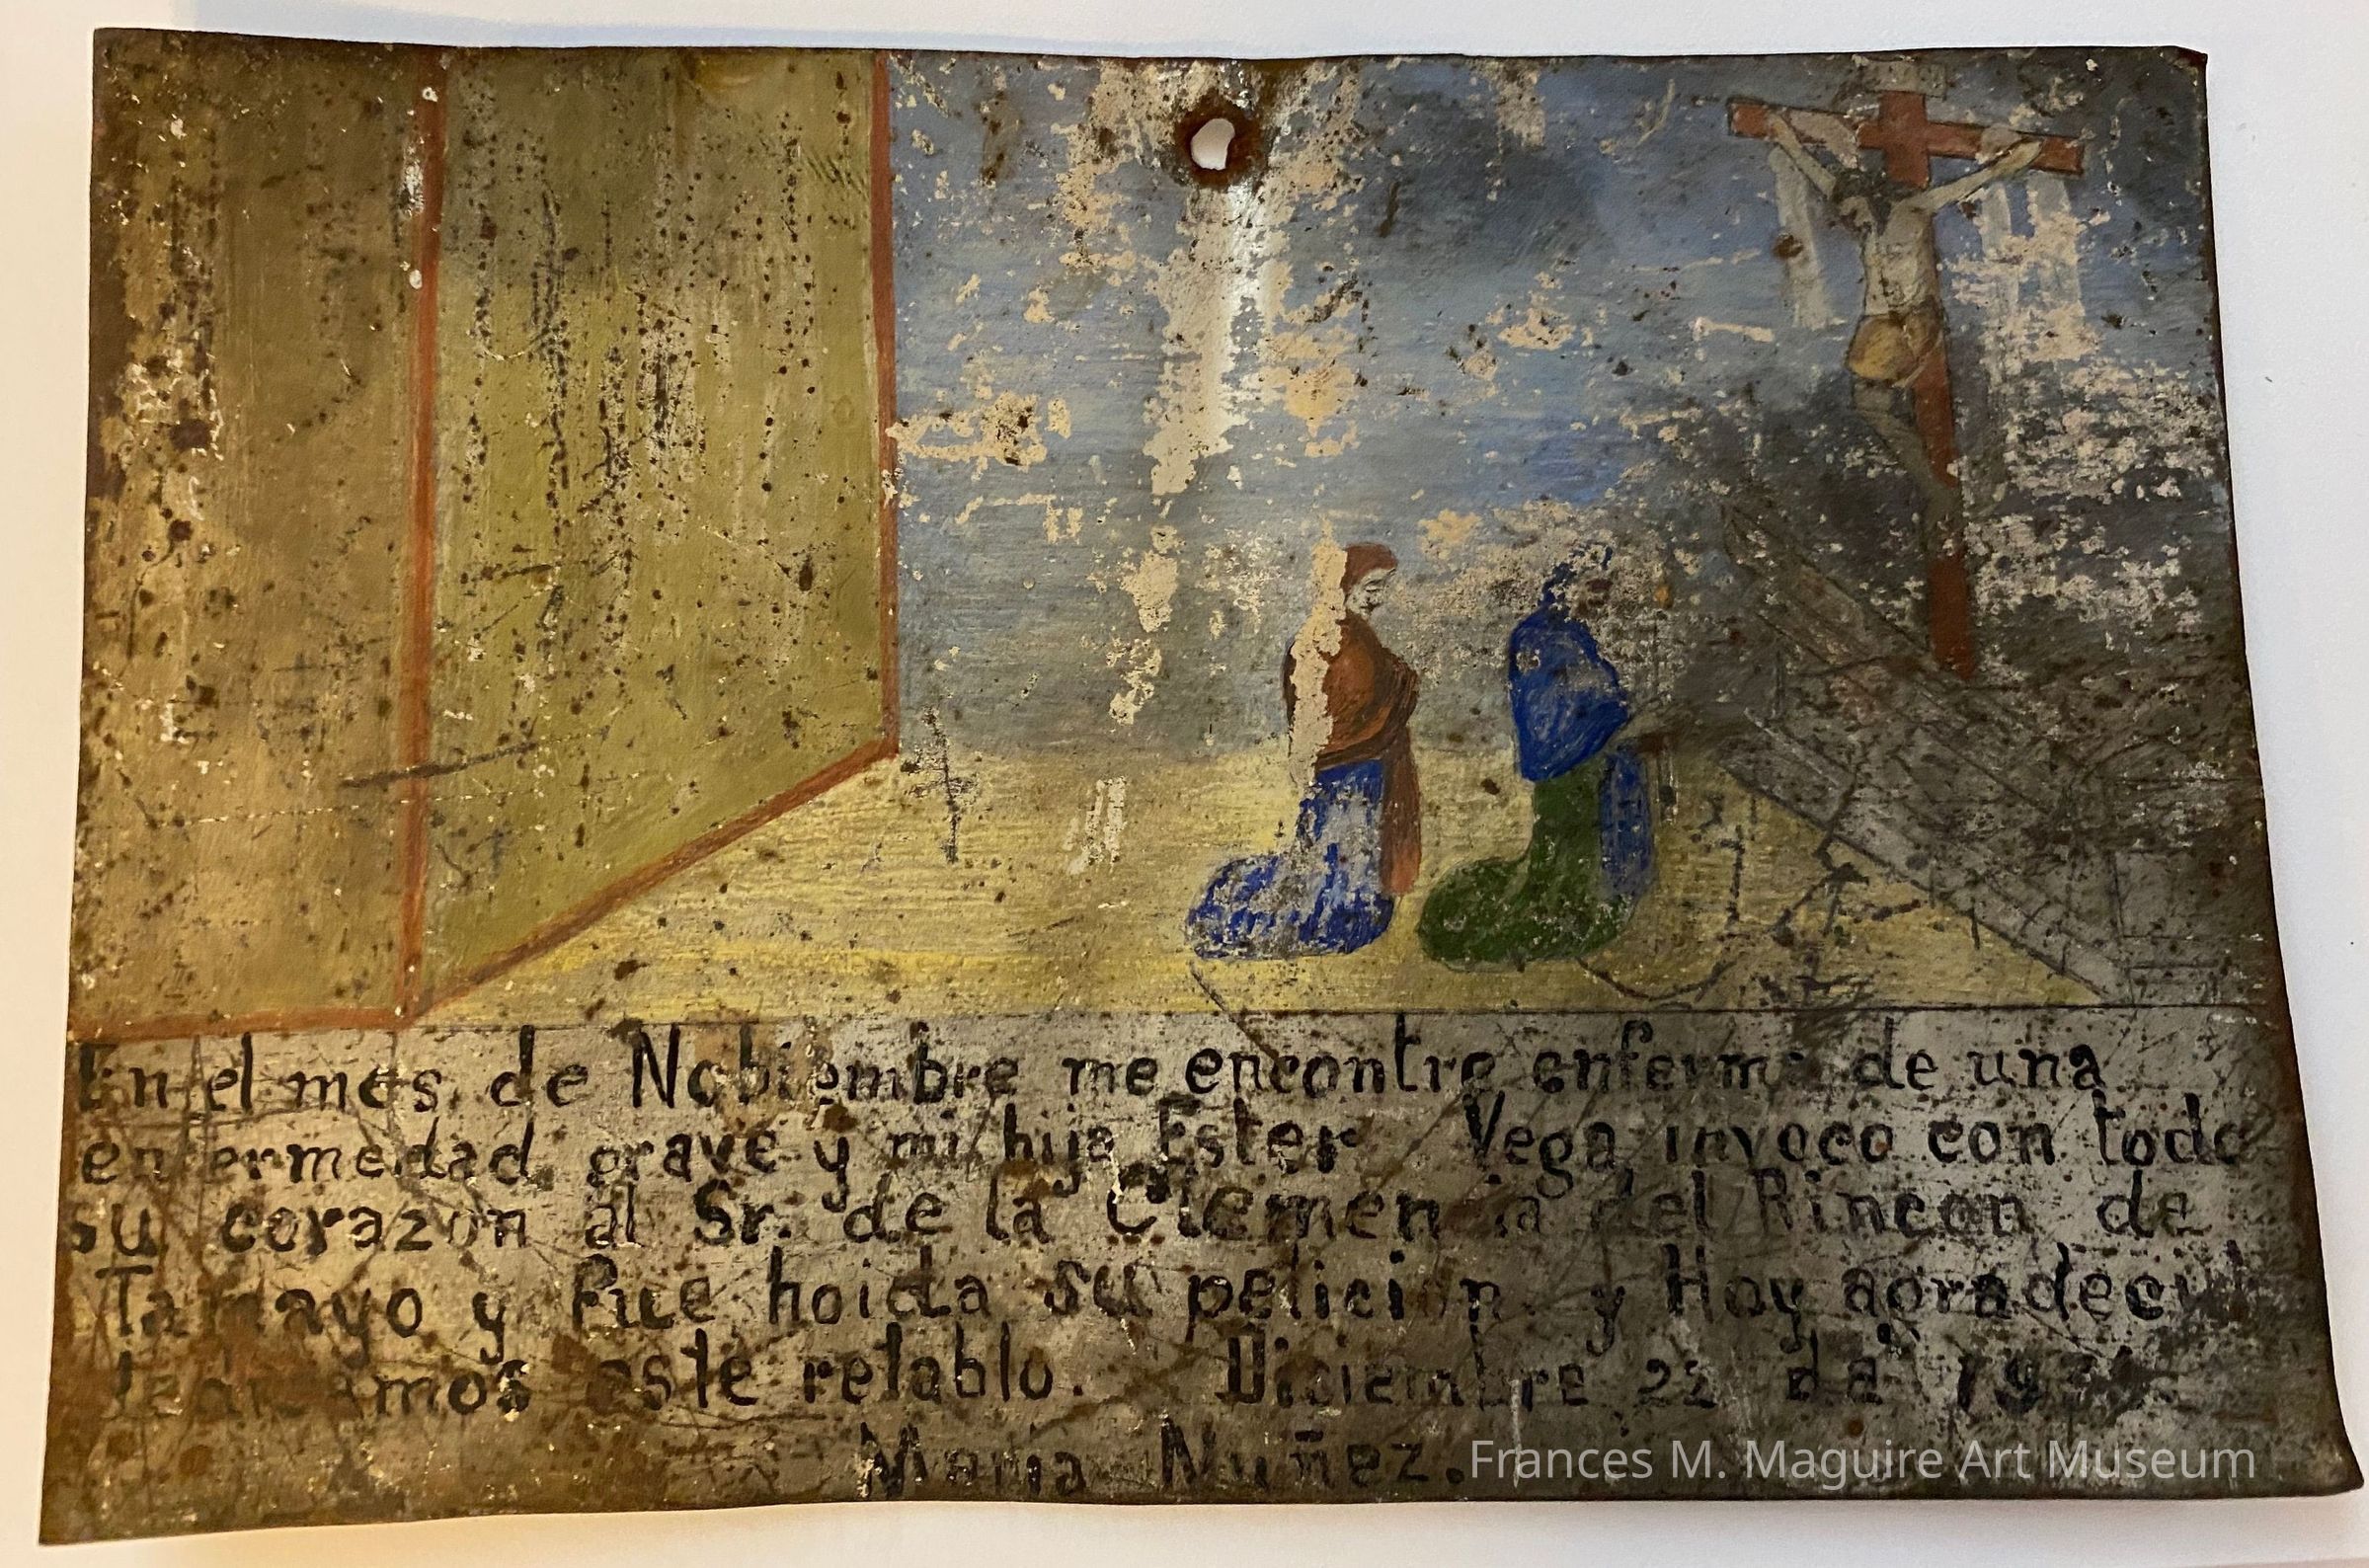 En el mes de Nobiembre me encontre enferma de una
enfermedad grave y mi hija Ester Vega invoco con todo
su corazon al Sr. de la Clemencia del Rincon de
Tamayo y Fue hoida su peticion y Hoy agradeci
este retablo. Diciembre 22 de
Maria Nuñez.
Frances M. Maguire Art Museum